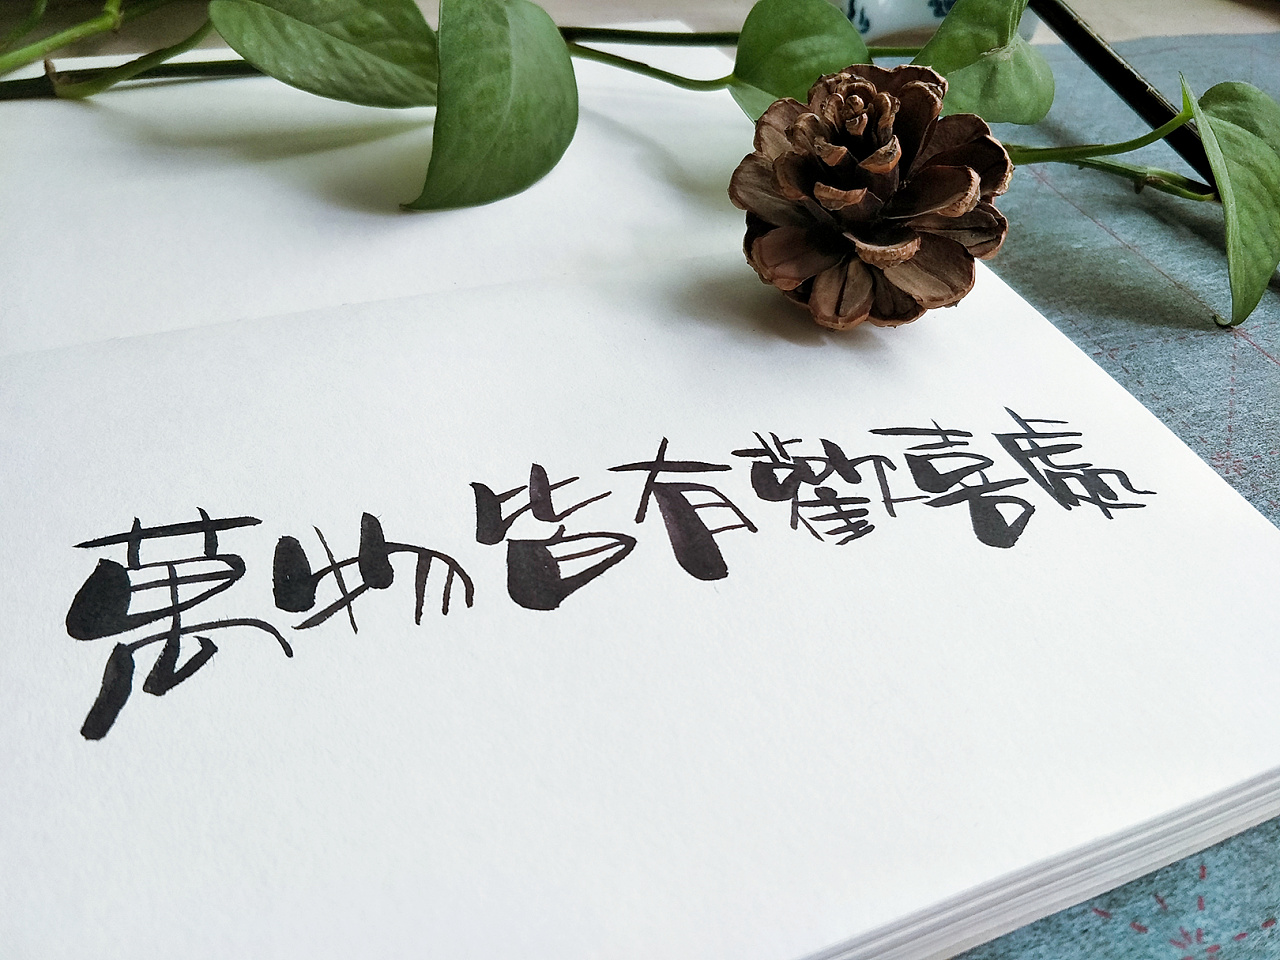 萬物皆有歡喜處